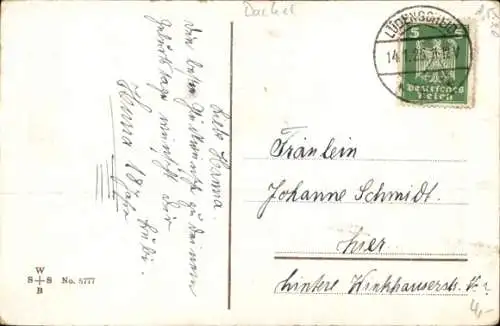 Dackel
Liebe Hanna.
Die besten Glückwünsche zu deinem
Geburtstage wünscht dir
Hanna 18 Jahre
W
S+S
B
No. 5777
LÜDENSCHEID
14.1.26
5
Deutsches
Reich
Fräulein
Johanne Schmidt.
hier
hintere Winkhauserstr.
4,-